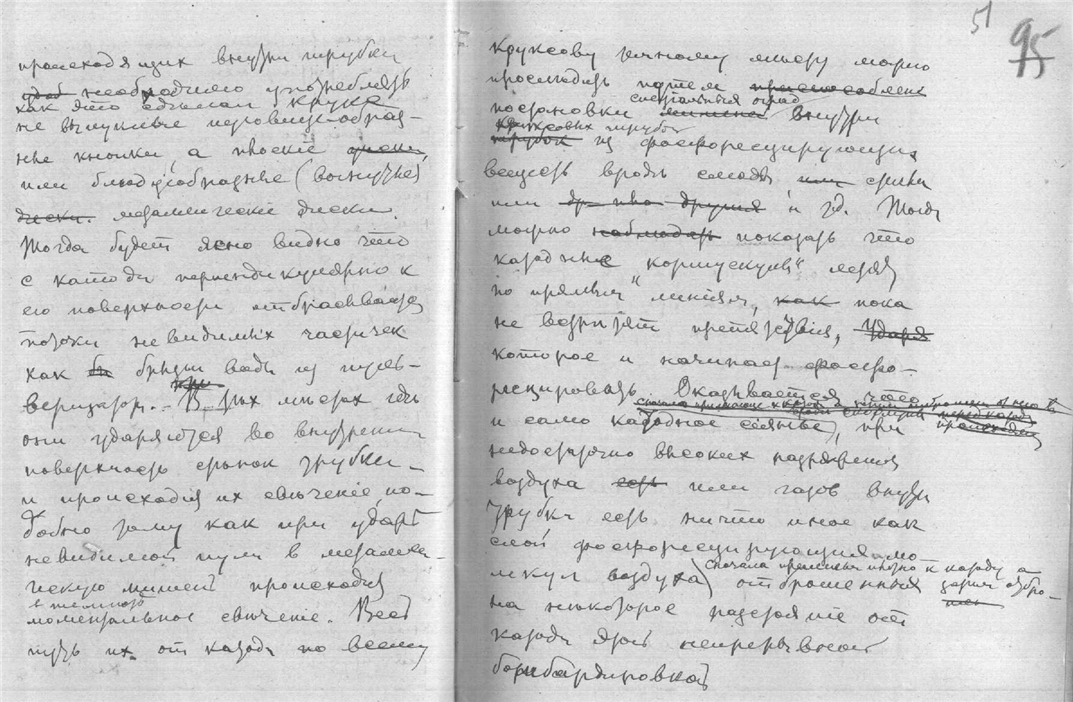 происходящих внутри трубки
необходимо употреблять
как это сделал Крукс
не выпуклые пуговицеобраз-
ные кнопки, а плоские
или блюдцеобразные (вогнутые)
металлические диски.
Тогда будет ясно видно что
с катода перпендикулярно к
его поверхности отбрасываются
потоки невидимых частичек
как брызги воды из пуль-
веризатора. В тех местах где
они ударяются во внутреннюю
поверхность стенок трубки
и происходит их свечение по-
добно тому как при ударе
невидимой пули в металли-
ческую мишень происходит
в темноте
моментальное свечение. Весь
путь их от катода по всему
51
95
Круксову темному можно
проследить путем
специальных
постановки внутри
Круксовых трубок
из фосфоресцирующих
веществ вроде слюды
или и т.д. Тогда
можно наблюдать показать что
катодные „корпускулы" летят
по прямым линиям, как пока
не встретят препятствия,
которое и начинает фосфо-
ресцировать. Оказывается что
и само катодное сияние, при
недостаточно высоких разрежениях
воздуха или газов внутри
трубки есть ничто иное как
слой фосфоресцирующих мо-
лекул воздуха) отброшенных
сначала к катоду а
на некоторое расстояние от
катода этой непрерывной
бомбардировкой